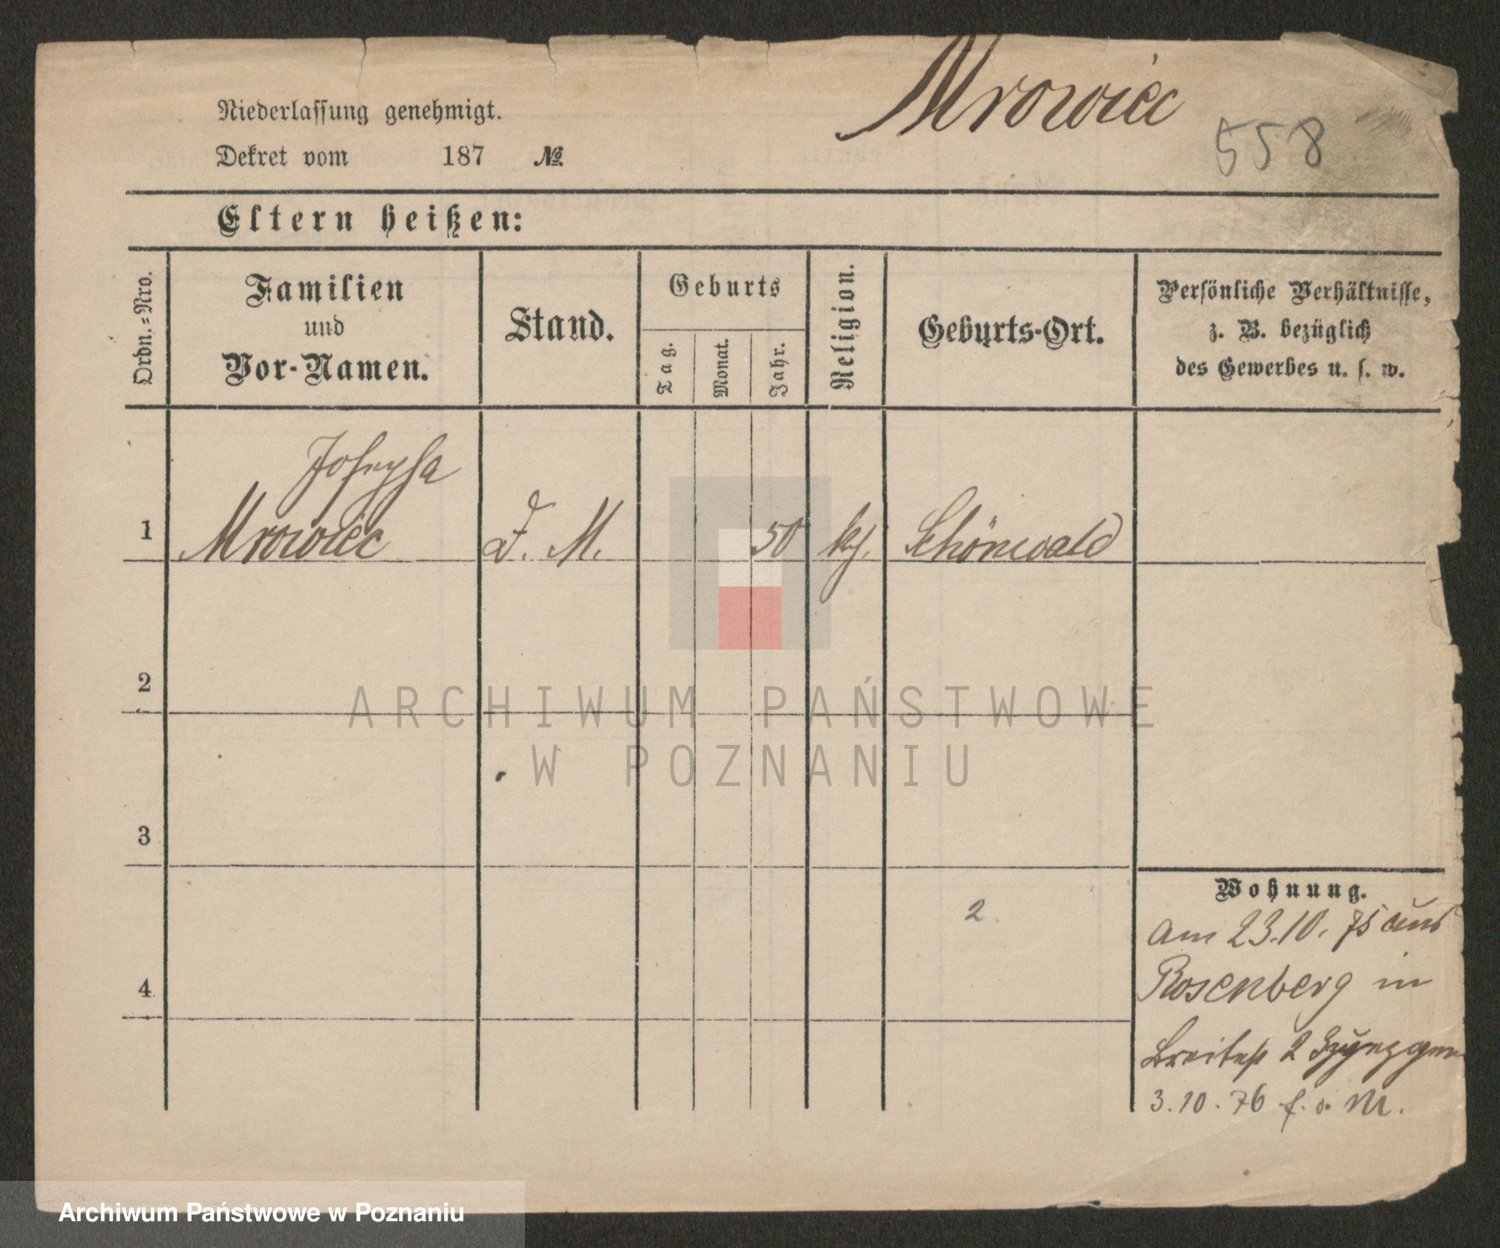 Mrowiec
558
Niederlassung genehmigt.
Dekret vom 187 No.
Eltern heißen:
Ordn.-Nro.
Familien
und
Vor-Namen.
Stand.
Geburts
Tag.
Monat.
Jahr.
Religion.
Geburts-Ort.
Persönliche Verhältnisse,
z. B. bezüglich
des Gewerbes u. s. w.
Josepha
1 Mrowiec D. M. 50 kg. Schönwald
2
3
4
2
Wohnung.
am 23.10. 75 aus
Rosenberg in
Breitest 2 zugezogen
3.10.76 f. o. M.
ARCHIWUM PAŃSTWOWE
W POZNANIU
Archiwum Państwowe w Poznaniu